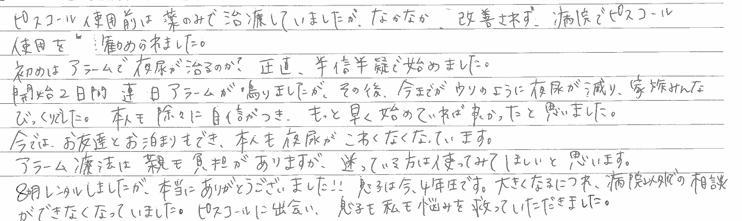 ピスコール使用前は薬のみで治療していましたが、なかなか、改善されず、病院でピスコール
使用を勧められました。
初めはアラームで夜尿が治るのか?正直、半信半疑で始めました。
開始2日間連日アラームが鳴りましたが、その後、今までがウソのように夜尿が減り、家族みんな
びっくりでした。本人も除々に自信がつき、もっと早く始めていれば良かったと思いました。
今では、お友達とお泊まりもでき、本人も夜尿がこわくなくなっています。
アラーム療法は親も負担がありますが、迷っている方は使ってみてほしいと思います。
8ヶ月レンタルしましたが、本当にありがとうございました!!息子は今、4年生です。大きくなるにつれ、病院以外での相談
ができなくなっていました。ピスコールに出会い、息子も私も悩みを救っていただきました。